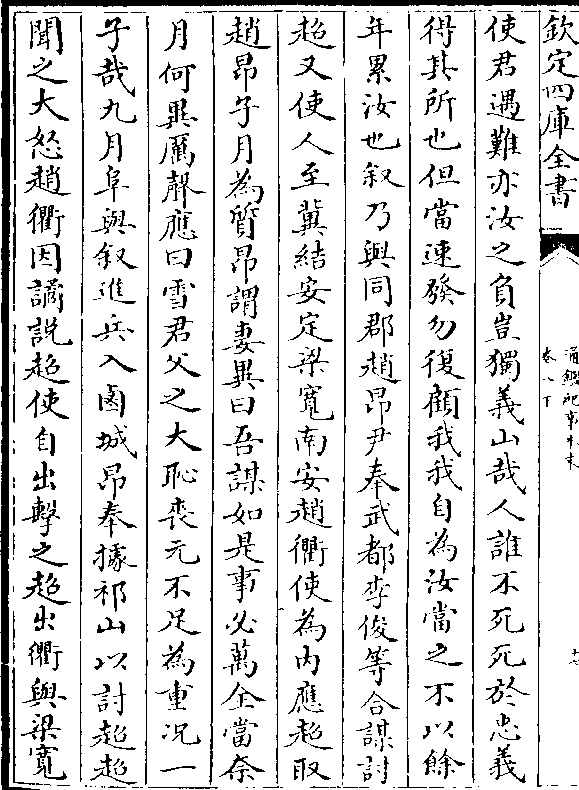 欽定四庫全書
通鑑紀事本末
卷八下
使君遇難亦汝之負豈獨義山哉人誰不死死於忠義
得其所也但當速發勿復顧我我自為汝當之不以餘
年累汝也叙乃與同郡趙昂尹奉武都李俊等合謀討
超又使人至冀結安定梁寛南安趙衢使為内應超取
趙昂子月為質昂謂妻異曰吾謀如是事必萬全當奈
月何異厲聲應曰雪君父之大恥喪元不足為重况一
子哉九月阜與叙進兵入鹵城昂奉據祁山以討超超
聞之大怒趙衢因譎說超使自出擊之超出衢與梁寛